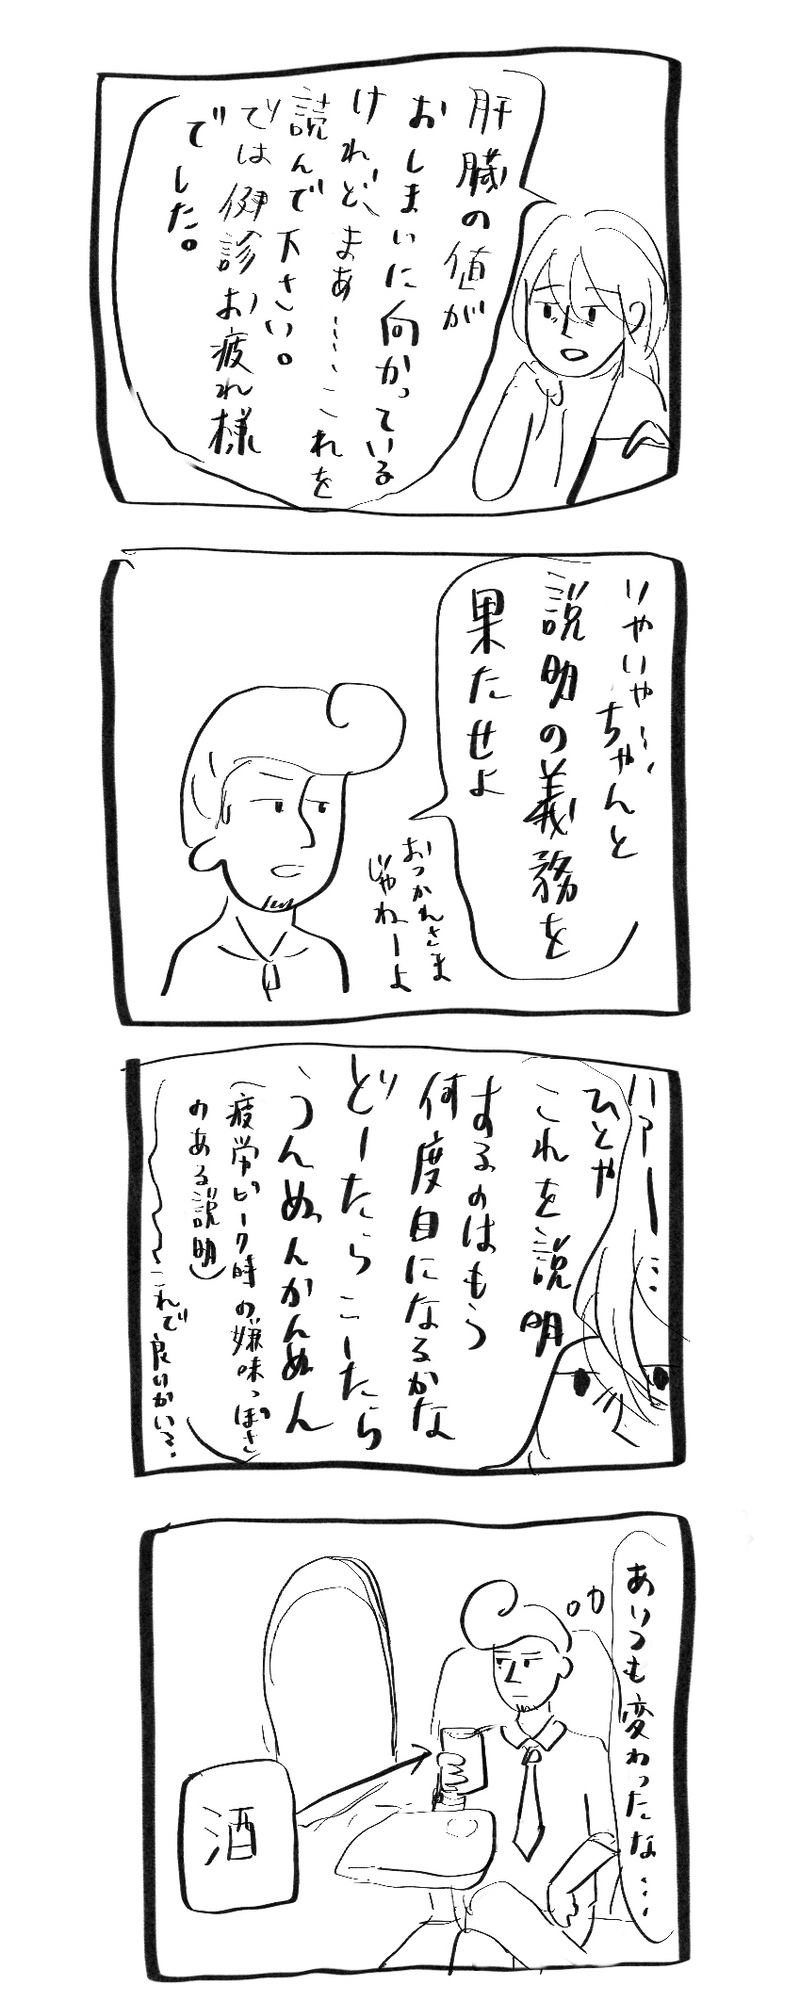 肝臓の値が
おしまいに向かっている
けれど、まあ……これを
読んで下さい。
では健診お疲れ様
でした。
いやいや〜、
ちゃんと
説明の義務を
果たせよ
おつかれさま
じゃねーよ
ハァー…
ひとや
これを説明
するのはもう
何度目になるかな
どーたらこーたら
うんぬんかんぬん
(疲労ピーク時の嫌味っぽさ
のある説明)
〜〜これで良いかい?
あいつも変わったな…
酒